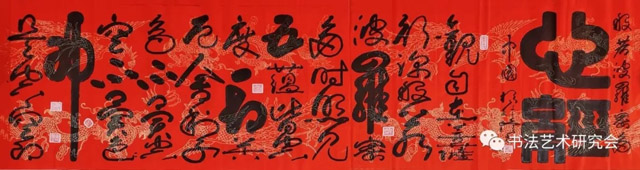 般若波羅蜜多
心經
中國
觀自在菩薩
行深般若
波羅蜜
多時照見
五蘊皆空
度一切苦
厄舍利子
色不異空
空不異色
是空空即
书法艺术研究会